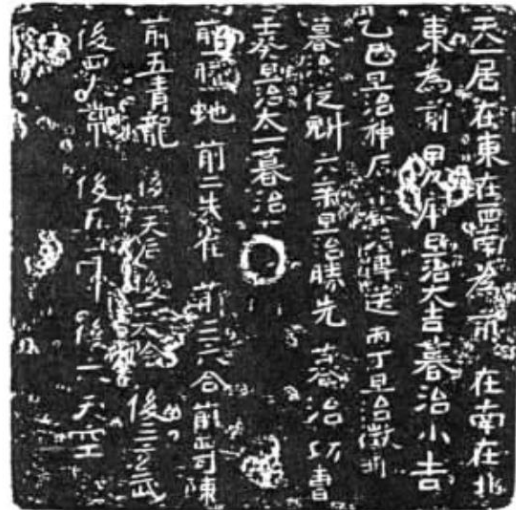 天一居在東在西南為前 在南在北
東為前 甲戊庚旦治大吉暮治小吉
乙己旦治神后 治傳送 丙丁旦治徵明
暮治從魁 六辛旦治勝先 暮治功曹
壬癸旦治太一暮治
前 虵 前二朱雀 前三六合 前四句陳
前五青龍 後一天后後二太陰 後三玄武
後四太常 後五白虎 後六天空